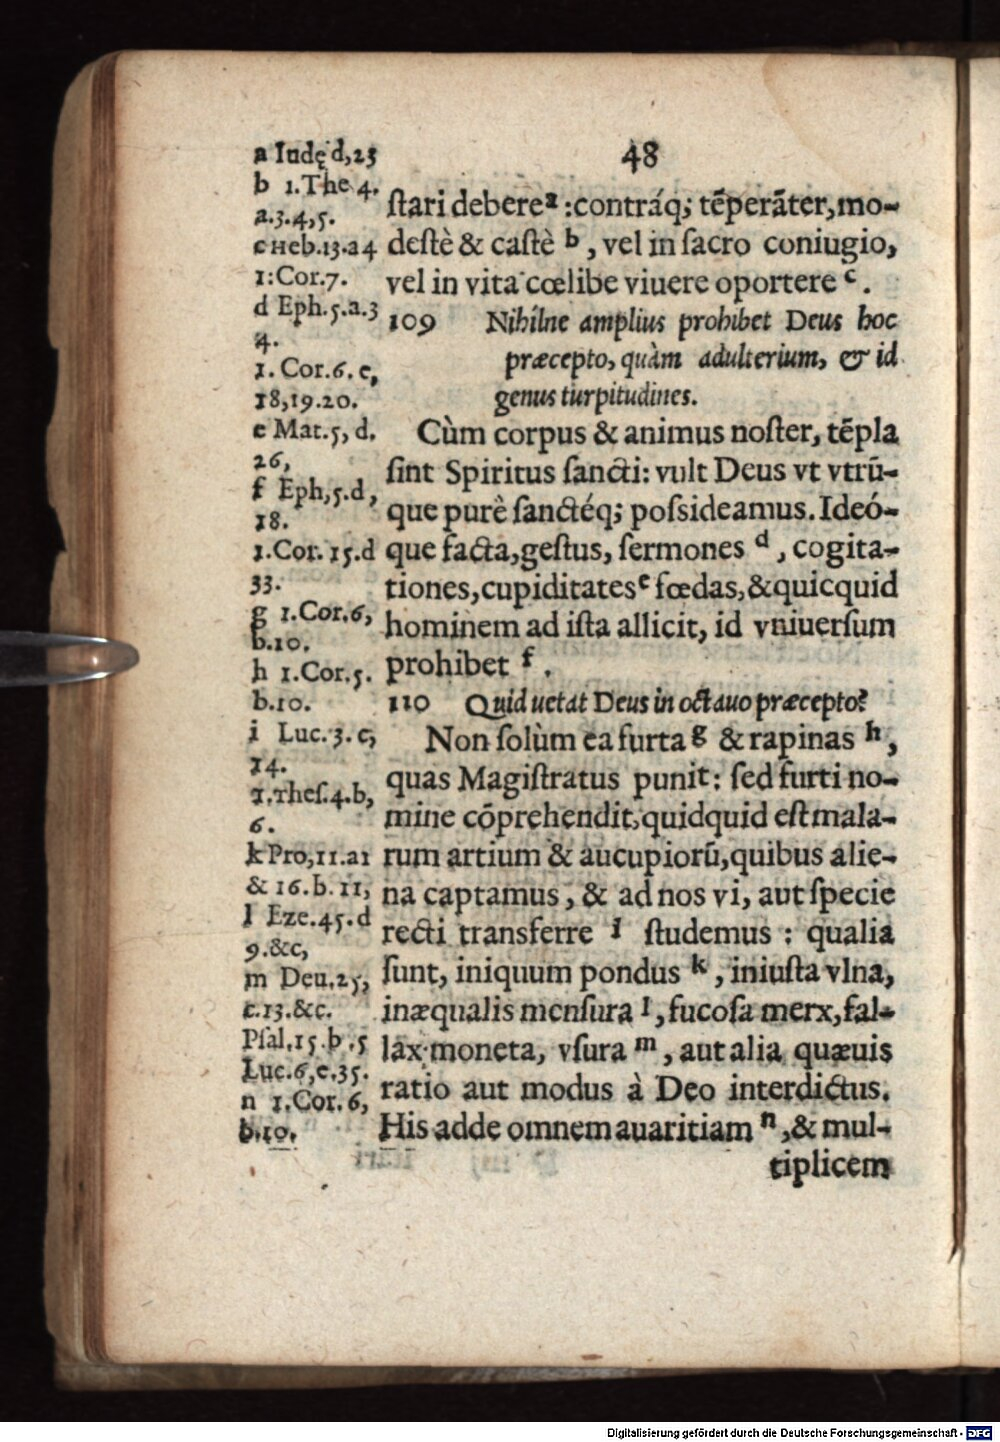 48
a Iudę d,23
b 1.The 4.
a.3.4,5.
c Heb.13.a4
1:Cor.7.
d Eph.5.a.3
4.
1. Cor.6. e,
18,19.20.
e Mat.5, d.
26,
f Eph,5.d,
18.
1.Cor. 15.d
33.
g 1.Cor.6,
b.10.
h 1.Cor.5.
b.10.
i Luc.3.c,
14.
1.Thes.4.b,
6.
k Pro,11.a1
& 16.b.11,
l Eze.45.d
9.&c,
m Deu.25,
c.13.&c.
Psal.15.b.5
Luc.6,e.35.
n 1.Cor.6,
b.10.
ſtari debere a :contráq; tẽperãter,mo-
deſtè & caſtè b , vel in ſacro coniugio,
vel in vita cœlibe viuere oportere c .
109 Nihílne amplius prohibet Deus hoc
præcepto, quàm adulterium, & id
genus turpitudines.
Cùm corpus & animus noſter, tẽpla
ſint Spiritus ſancti: vult Deus vt vtrũ-
que purè ſanctéq; poſsideamus. Ideó-
que facta,geſtus, ſermones d , cogita-
tiones,cupiditates e fœdas,&quicquid
hominem ad iſta allicit, id vniuerſum
prohibet f .
110 Quid uetat Deus in octauo præcepto?
Non ſolùm ea furta g & rapinas h ,
quas Magiſtratus punit: ſed furti no-
mine cõprehendit,quidquid eſt mala-
rum artium & aucupiorũ,quibus alie-
na captamus, & ad nos vi, aut ſpecie
recti transferre i ſtudemus : qualia
ſunt, iniquum pondus k , iniuſta vlna,
inæqualis menſura l , fucoſa merx,fal-
lax moneta, vſura m , aut alia quæuis
ratio aut modus à Deo interdictus.
His adde omnem auaritiam n ,& mul-
tiplicem
Digitalisierung gefördert durch die Deutsche Forschungsgemeinschaft - DFG